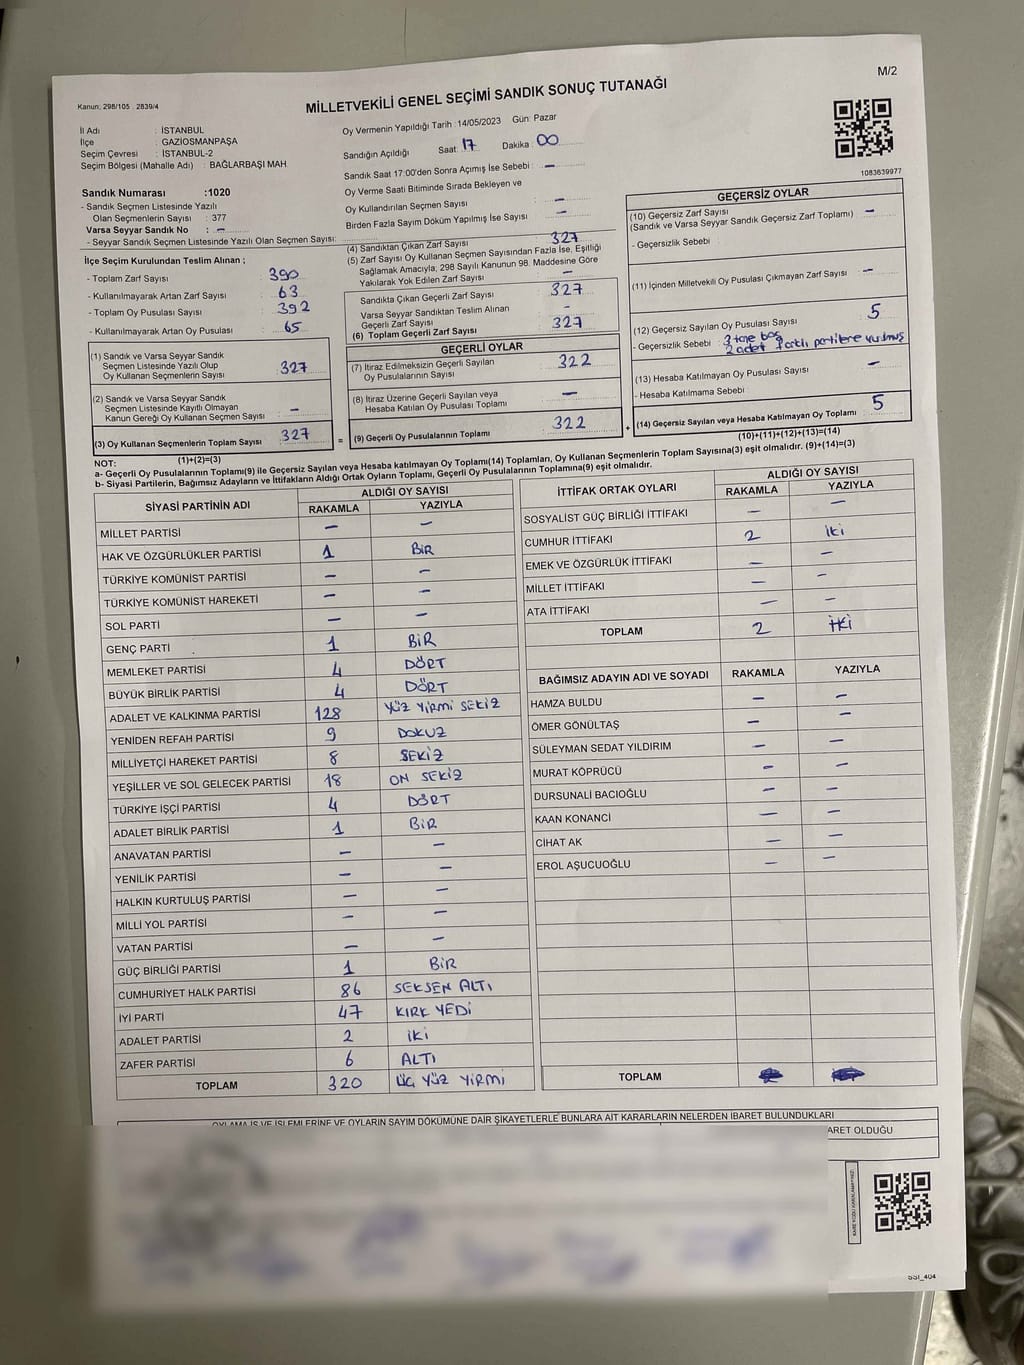 M/2
Kanun: 298/105 . 2839/4
MİLLETVEKİLİ GENEL SEÇİMİ SANDIK SONUÇ TUTANAĞI
İl Adı : İSTANBUL
İlçe : GAZİOSMANPAŞA
Seçim Çevresi : İSTANBUL-2
Seçim Bölgesi (Mahalle Adı) : BAĞLARBAŞI MAH
Oy Vermenin Yapıldığı Tarih : 14/05/2023 Gün: Pazar
Sandığın Açıldığı Saat: 17 Dakika: 00
Sandık Saat 17:00'den Sonra Açımış İse Sebebi : —
Oy Verme Saati Bitiminde Sırada Bekleyen ve
Oy Kullandırılan Seçmen Sayısı : —
Birden Fazla Sayım Döküm Yapılmış İse Sayısı : —
1083639977
Sandık Numarası :1020
- Sandık Seçmen Listesinde Yazılı
Olan Seçmenlerin Sayısı : 377
Varsa Seyyar Sandık No : —
- Seyyar Sandık Seçmen Listesinde Yazılı Olan Seçmen Sayısı:
İlçe Seçim Kurulundan Teslim Alınan ;
- Toplam Zarf Sayısı : 390
- Kullanılmayarak Artan Zarf Sayısı : 63
- Toplam Oy Pusulası Sayısı : 392
- Kullanılmayarak Artan Oy Pusulası : 65
(1) Sandık ve Varsa Seyyar Sandık
Seçmen Listesinde Yazılı Olup
Oy Kullanan Seçmenlerin Sayısı : 327
(2) Sandık ve Varsa Seyyar Sandık
Seçmen Listesinde Kayıtlı Olmayan
Kanun Gereği Oy Kullanan Seçmen Sayısı : —
(3) Oy Kullanan Seçmenlerin Toplam Sayısı : 327
(1)+(2)=(3)
(4) Sandıktan Çıkan Zarf Sayısı : 327
(5) Zarf Sayısı Oy Kullanan Seçmen Sayısından Fazla İse, Eşitliği
Sağlamak Amacıyla, 298 Sayılı Kanunun 98. Maddesine Göre
Yakılarak Yok Edilen Zarf Sayısı : —
Sandıkta Çıkan Geçerli Zarf Sayısı : 327
Varsa Seyyar Sandıktan Teslim Alınan
Geçerli Zarf Sayısı : -
(6) Toplam Geçerli Zarf Sayısı : 327
GEÇERLİ OYLAR
(7) İtiraz Edilmeksizin Geçerli Sayılan
Oy Pusulalarının Sayısı : 322
(8) İtiraz Üzerine Geçerli Sayılan veya
Hesaba Katılan Oy Pusulası Toplamı : —
= (9) Geçerli Oy Pusulalarının Toplamı : 322 +
GEÇERSİZ OYLAR
(10) Geçersiz Zarf Sayısı : —
(Sandık ve Varsa Seyyar Sandık Geçersiz Zarf Toplamı)
- Geçersizlik Sebebi :
(11) İçinden Milletvekili Oy Pusulası Çıkmayan Zarf Sayısı : —
(12) Geçersiz Sayılan Oy Pusulası Sayısı : 5
- Geçersizlik Sebebi : 3 tane boş
2 adet farklı partilere vurulmuş
(13) Hesaba Katılmayan Oy Pusulası Sayısı : —
- Hesaba Katılmama Sebebi :
(14) Geçersiz Sayılan veya Hesaba Katılmayan Oy Toplamı : 5
(10)+(11)+(12)+(13)=(14)
NOT:
a- Geçerli Oy Pusulalarının Toplamı(9) ile Geçersiz Sayılan veya Hesaba katılmayan Oy Toplamı(14) Toplamları, Oy Kullanan Seçmenlerin Toplam Sayısına(3) eşit olmalıdır. (9)+(14)=(3)
b- Siyasi Partilerin, Bağımsız Adayların ve İttifakların Aldığı Ortak Oyların Toplamı, Geçerli Oy Pusulalarının Toplamına(9) eşit olmalıdır.
SİYASİ PARTİNİN ADI ALDIĞI OY SAYISI
RAKAMLA YAZIYLA
MİLLET PARTİSİ — —
HAK VE ÖZGÜRLÜKLER PARTİSİ 1 BİR
TÜRKİYE KOMÜNİST PARTİSİ — —
TÜRKİYE KOMÜNİST HAREKETİ — —
SOL PARTİ — —
GENÇ PARTİ 1 BİR
MEMLEKET PARTİSİ 4 DÖRT
BÜYÜK BİRLİK PARTİSİ 4 DÖRT
ADALET VE KALKINMA PARTİSİ 128 YÜZ YİRMİ SEKİZ
YENİDEN REFAH PARTİSİ 9 DOKUZ
MİLLİYETÇİ HAREKET PARTİSİ 8 SEKİZ
YEŞİLLER VE SOL GELECEK PARTİSİ 18 ON SEKİZ
TÜRKİYE İŞÇİ PARTİSİ 4 DÖRT
ADALET BİRLİK PARTİSİ 1 BİR
ANAVATAN PARTİSİ — —
YENİLİK PARTİSİ — —
HALKIN KURTULUŞ PARTİSİ — —
MİLLİ YOL PARTİSİ — —
VATAN PARTİSİ — —
GÜÇ BİRLİĞİ PARTİSİ 1 BİR
CUMHURİYET HALK PARTİSİ 86 SEKSEN ALTI
İYİ PARTİ 47 KIRK YEDİ
ADALET PARTİSİ 2 İKİ
ZAFER PARTİSİ 6 ALTI
TOPLAM 320 ÜÇ YÜZ YİRMİ
İTTİFAK ORTAK OYLARI ALDIĞI OY SAYISI
RAKAMLA YAZIYLA
SOSYALİST GÜÇ BİRLİĞİ İTTİFAKI — —
CUMHUR İTTİFAKI 2 İki
EMEK VE ÖZGÜRLÜK İTTİFAKI — —
MİLLET İTTİFAKI — —
ATA İTTİFAKI — —
TOPLAM 2 İKİ
BAĞIMSIZ ADAYIN ADI VE SOYADI RAKAMLA YAZIYLA
HAMZA BULDU — —
ÖMER GÖNÜLTAŞ — —
SÜLEYMAN SEDAT YILDIRIM — —
MURAT KÖPRÜCÜ — —
DURSUNALİ BACIOĞLU — —
KAAN KONANCİ — —
CİHAT AK — —
EROL AŞUCUOĞLU — —
TOPLAM
OYLAMA İŞ VE İŞLEMLERİNE VE OYLARIN SAYIM DÖKÜMÜNE DAİR ŞİKAYETLERLE BUNLARA AİT KARARLARIN NELERDEN İBARET BULUNDUKLARI
ARET OLDUĞU
SSI_404